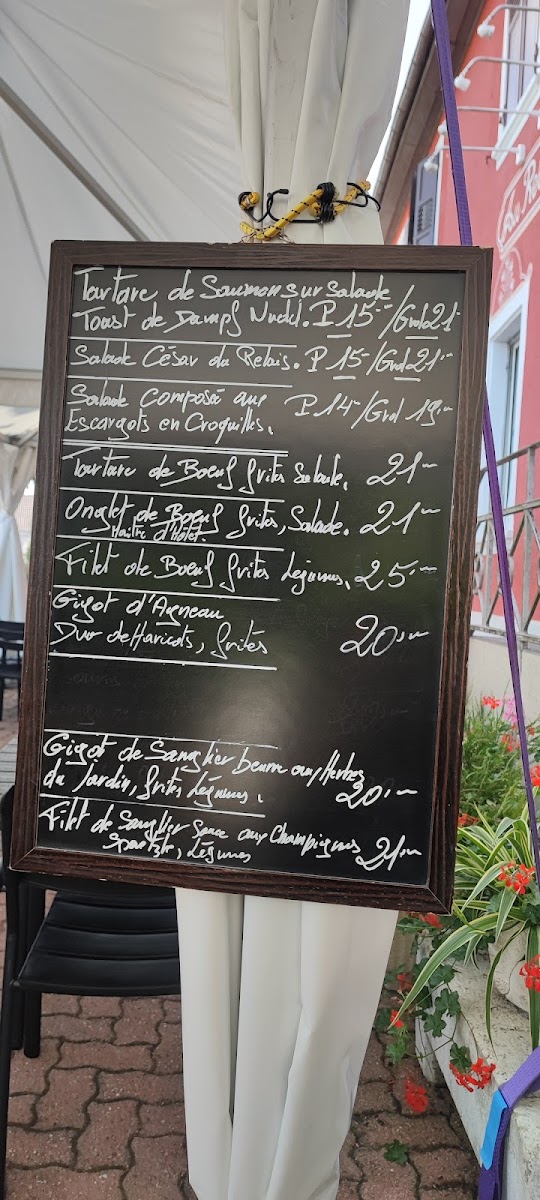 Tartare de Saumon sur Salade
Toast de Dampf Nudel. P 15.-/Grd 21.-
Salade César du Relais. P 15.-/Grd 21.-
Salade Composé aux P 14.-/Grd 19.-
Escargots en Croquilles.
Tartare de Boeuf frites Salade. 21.-
Onglet de Boeuf frites, Salade. 21.-
Maître d'hôtel.
Filet de Boeuf frites Légumes. 25.-
Gigot d'Agneau
Duo de Haricots, frites 20.-
Gigot de Sanglier beurre aux Herbes
du Jardin, frites Légumes. 20.-
Filet de Sanglier Sauce aux Champignons
Spaetzle, Légumes 21.-
Au Re